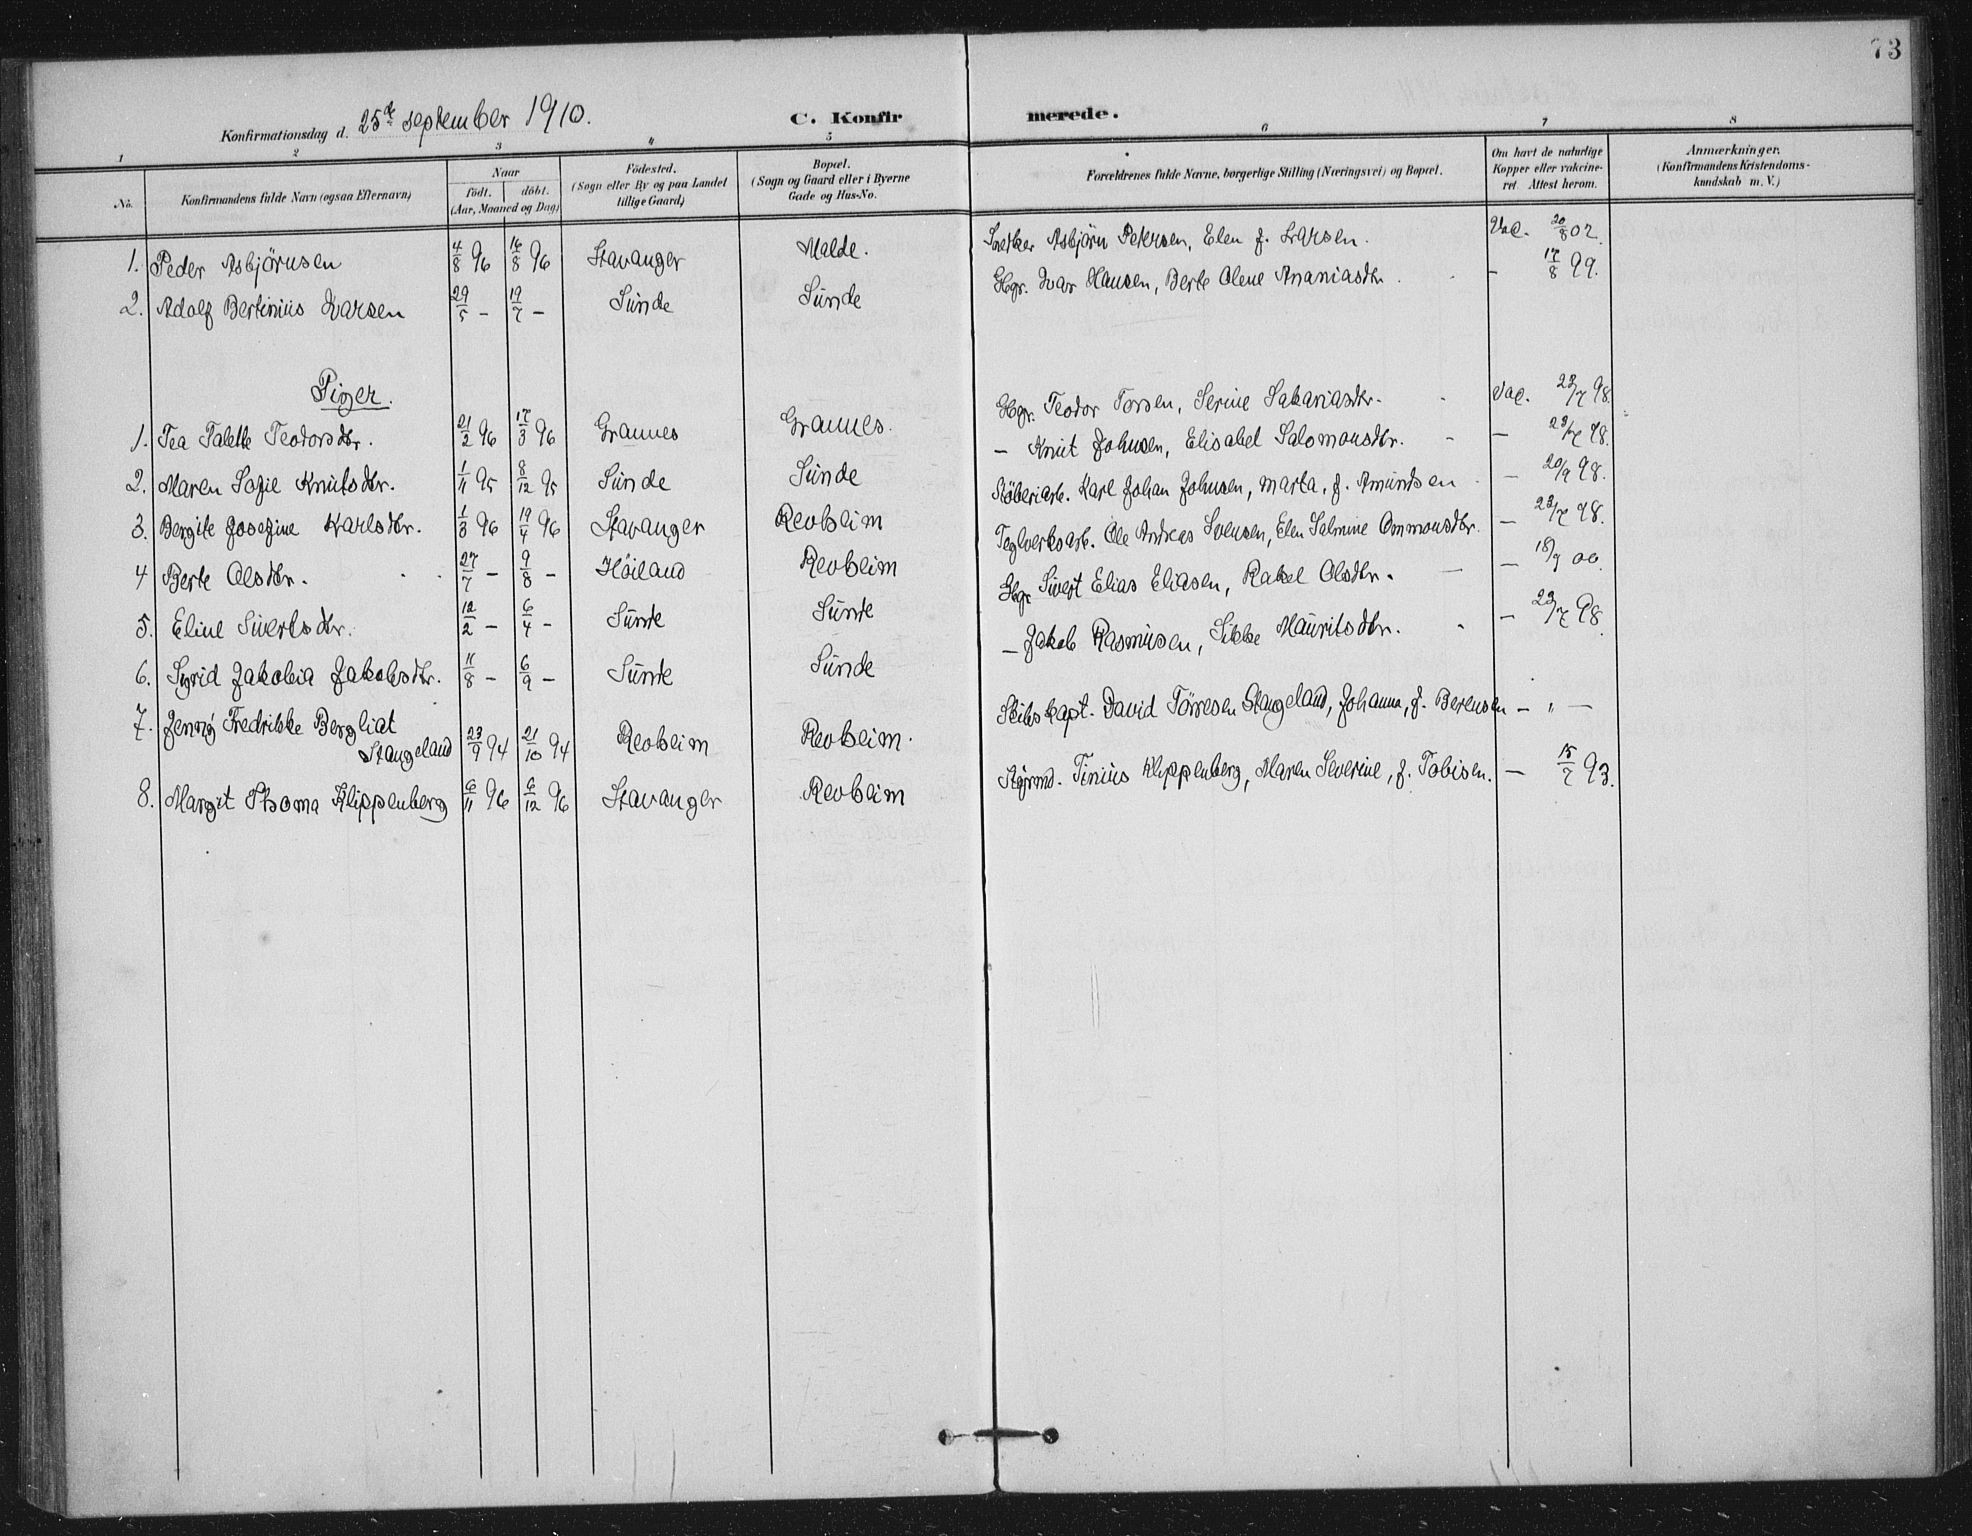 73
Konfirmationsdag d. 25de september 1910. C. Konfirmerede.
1 2 3 4 5 6 7 8
No. Konfirmandens fulde Navn (ogsaa Efternavn) Naar födt. döbt. (Aar, Maaned og Dag) Födested. (Sogn eller By og paa Landet tillige Gaard) Bopæl. (Sogn og Gaard eller i Byerne Gade og Hus-No. Forældrenes fulde Navne, borgerlige Stilling (Næringsvei) og Bopæl. Om havt de naturlige Kopper eller vakcineret. Attest herom. Anmærkninger. (Konfirmandens Kristendomskundskab m. V.)
1. Peder Asbjörnsen 4/8 96 16/8 96 Stavanger Malde. Asbjörn Petersen, Elen f. Larsen. Vac. 20/8 02.
2. Adolf Bertinius Ivarsen 29/5 – 19/7 – Sunde Sunde Gbgr. Ivar Hansen, Berte Olene Ananiasdtr. – 17/8 99.
Piger.
1. Tea Talette Teodorsdtr. 21/2 96 17/3 96 Grannes Grannes. Gbgr. Teodor Torsen, Serine Sakariasdtr. Vac. 23/7 98.
2. Maren Sofie Knutsdtr. 1/11 95 8/12 95 Sunde Sunde – Knut Johnsen, Elisabet Salomonsdtr. – 23/7 98.
3. Bergite Josefine Karlsdtr. 1/3 96 19/4 96 Stavanger Revheim Stöberiarb. Karl Johan Johnsen, Marta, f. Amundsen – 20/9 98.
4 Berte Olsdtr. 27/7 – 9/8 – Höiland Revheim Teglverksarb. Ole Andreas Svensen, Elen Salmine Ommonsdtr. – 23/7 98.
5. Eline Sivertsdtr. 12/2 – 6/4 – Sunde Sunde Gbgr Sivert Elias Eliasen, Rakel Olsdtr. – 18/9 00.
6. Sigrid Jakobia Jakobsdtr. 11/8 – 6/9 – Sunde Sunde – Jakob Rasmusen, Sikke Mauritsdtr. – 23/7 98.
7. Jenny Fredrikke Bergliat
Stangeland 23/9 94 21/10 94 Revheim Revheim. Skibskapt. David Törresen Stangeland, Johanna, f. Berensen – " –
8. Margit Thoma Klippenberg 6/11 96 6/12 96 Stavanger Revheim Styrmd. Tinius Klippenberg, Maren Severine, f. Tobisen. – 15/7 93.